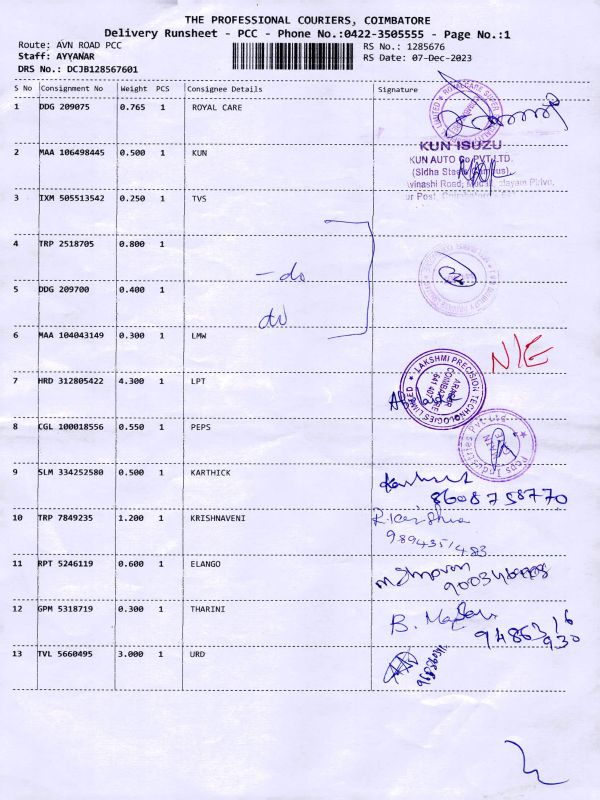 THE PROFESSIONAL COURIERS, COIMBATORE
Delivery Runsheet - PCC - Phone No.:0422-3505555 - Page No.:1
Route: AVN ROAD PCC
RS No.: 1285676
Staff: AYYANAR
RS Date: 07-Dec-2023
DRS No.: DCJB128567601
S No Consignment No Weight PCS Consignee Details Signature
1 DDG 209075 0.765 1 ROYAL CARE
2 MAA 106498445 0.500 1 KUN
KUN ISUZU
KUN AUTO Co PVT LTD.
3 IXM 505513542 0.250 1 TVS
4 TRP 2518705 0.800 1
- do
5 DDG 209700 0.400 1
do
6 MAA 104043149 0.300 1 LMW
N/E
7 HRD 312805422 4.300 1 LPT
LAKSHMI PRECISION TECHNOLOGIES LIMITED
COIMBATORE
641 407
8 CGL 100018556 0.550 1 PEPS
Peps Industries Pvt Ltd
9 SLM 334252580 0.500 1 KARTHICK
8608758770
10 TRP 7849235 1.200 1 KRISHNAVENI
9894351483
11 RPT 5246119 0.600 1 ELANGO
12 GPM 5318719 0.300 1 THARINI
13 TVL 5660495 3.000 1 URD